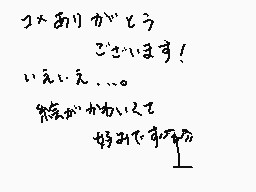 コメありがとう
ございます!
いえいえ...。
絵がかわいくて
好みです